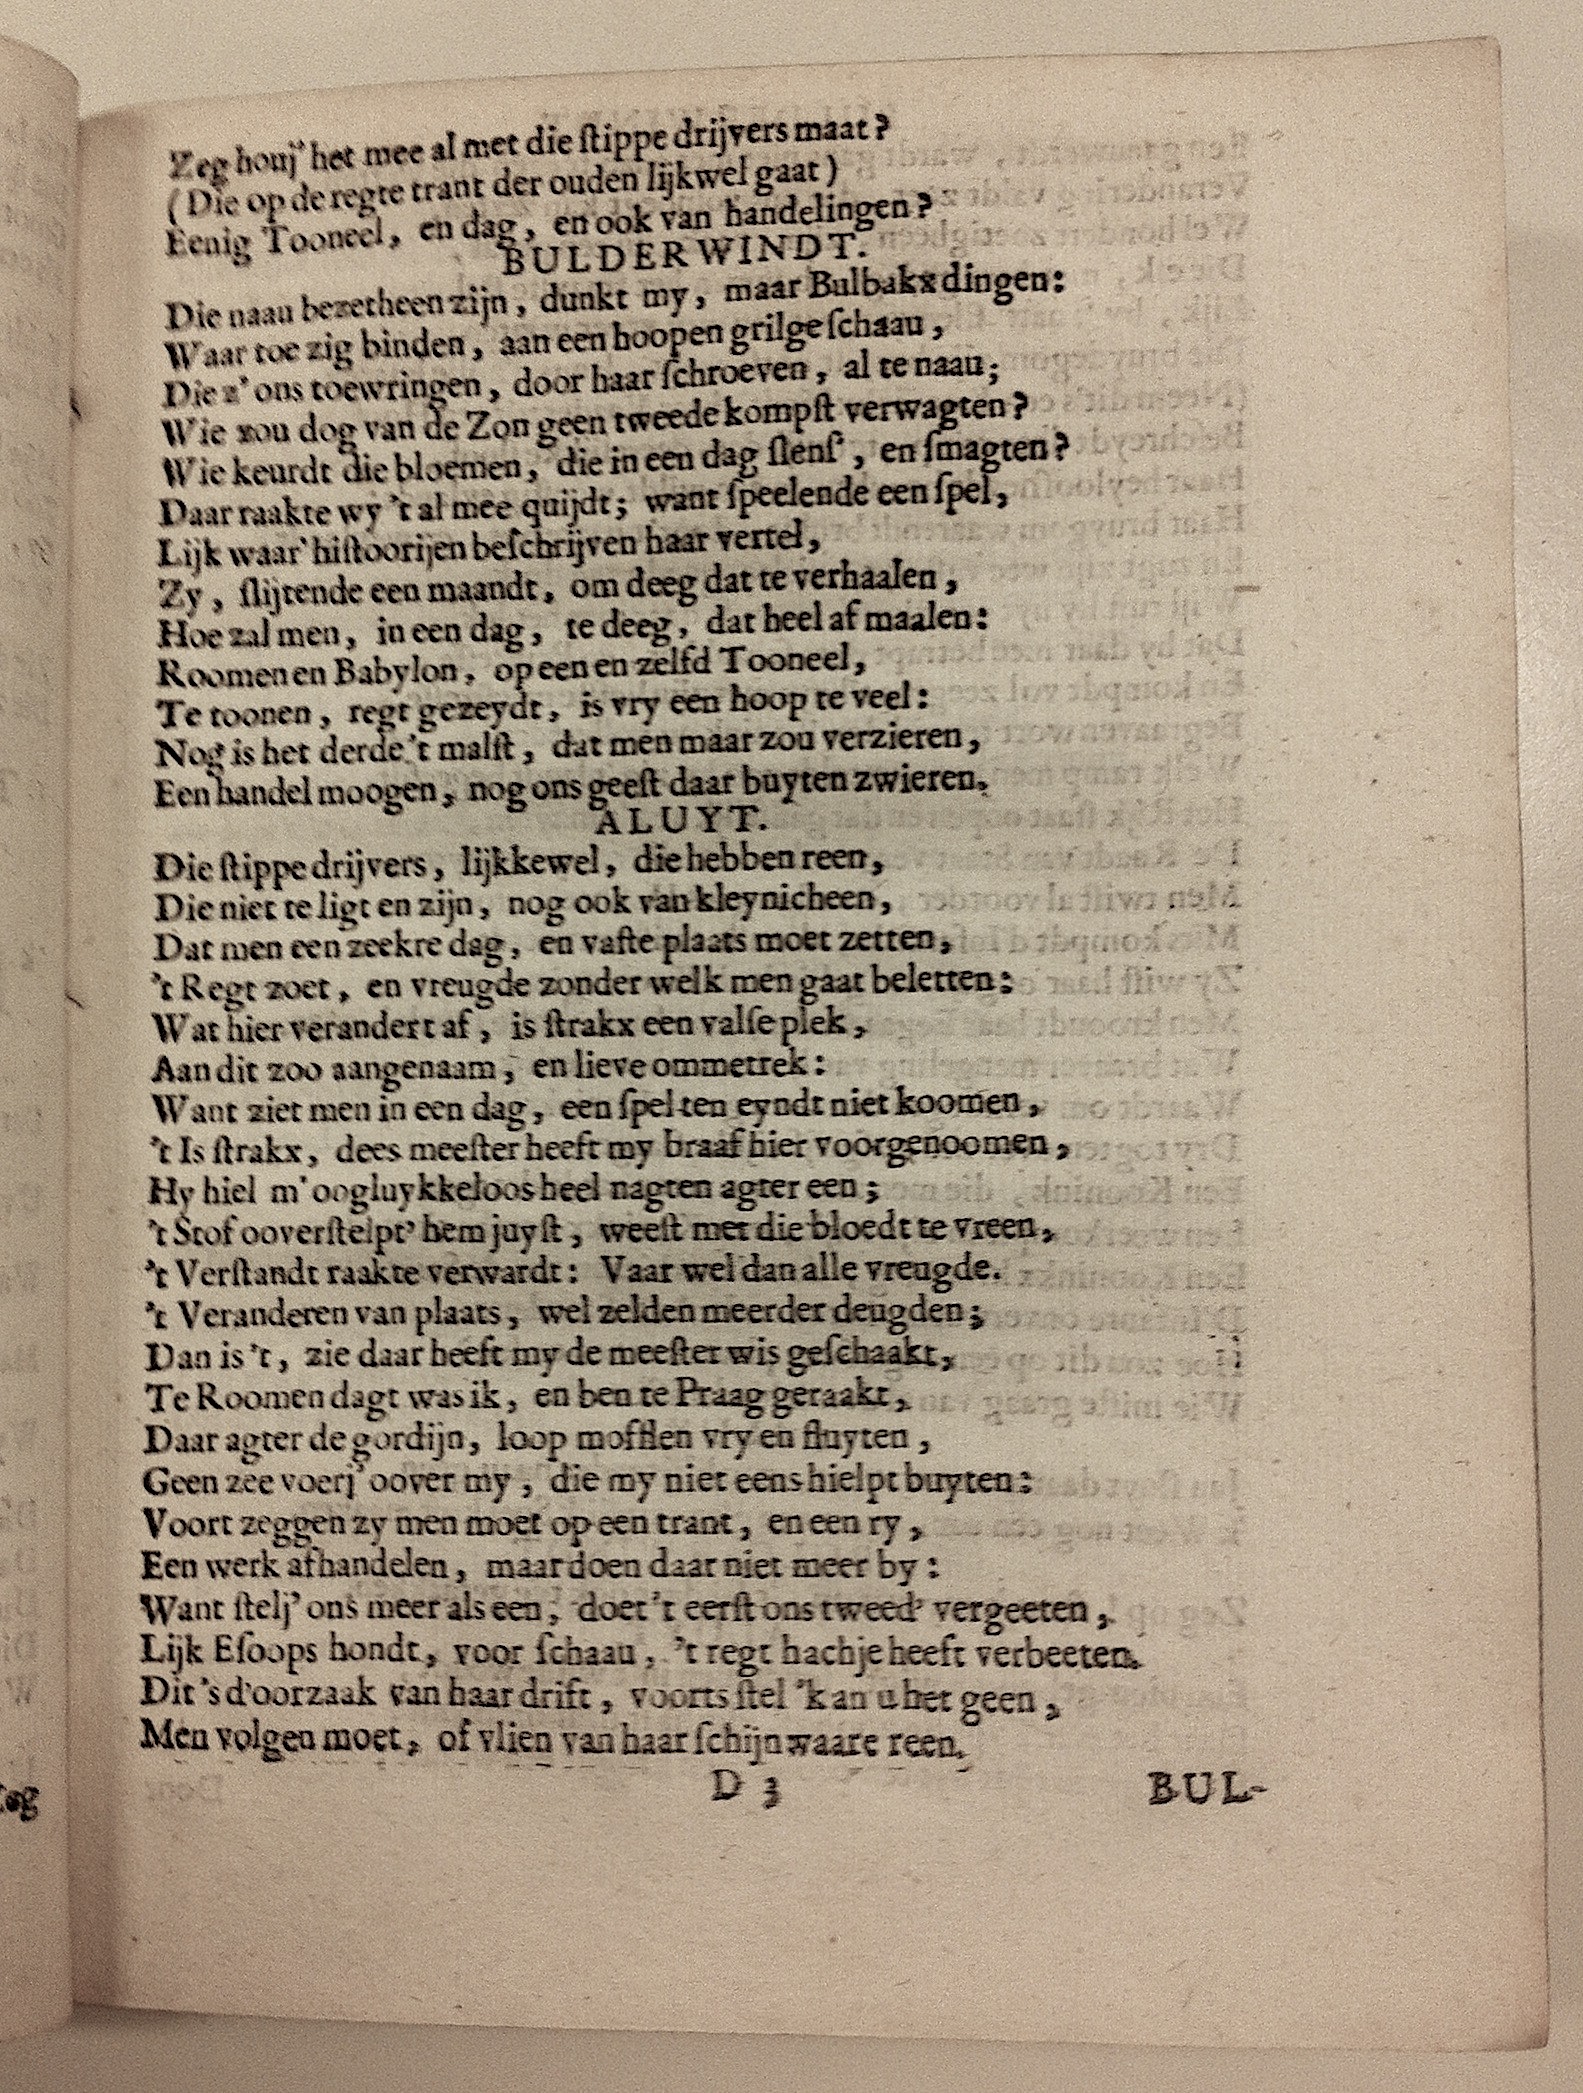 Zeg houj' het mee al met die ſtippe drijvers maat?
(Die op de regte trant der ouden lijkwel gaat)
Eenig Tooneel, en dag, en ook van handelingen?
BULDERWINDT.
Die naau bezetheen zijn, dunkt my, maar Bulbakx dingen:
Waar toe zig binden, aan een hoopen grilgeſchaau,
Die z' ons toewringen, door haar ſchroeven, al te naau;
Wie zou dog van de Zon geen tweede kompſt verwagten?
Wie keurdt die bloemen, die in een dag ſlenſ', en ſmagten?
Daar raakte wy 't al mee quijdt; want ſpeelende een ſpel,
Lijk waar' hiſtoorijen beſchrijven haar vertel,
Zy, ſlijtende een maandt, om deeg dat te verhaalen,
Hoe zal men, in een dag, te deeg, dat heel af maalen:
Roomen en Babylon, op een en zelfd Tooneel,
Te toonen, regt gezeydt, is vry een hoop te veel:
Nog is het derde 't malſt, dat men maar zou verzieren,
Een handel moogen, nog ons geeſt daar buyten zwieren.
ALUYT.
Die ſtippe drijvers, lijkkewel, die hebben reen,
Die niet te ligt en zijn, nog ook van kleynicheen,
Dat men een zeekre dag, en vaſte plaats moet zetten,
't Regt zoet, en vreugde zonder welk men gaat beletten:
Wat hier verandert af, is ſtrakx een valſe plek,
Aan dit zoo aangenaam, en lieve ommetrek:
Want ziet men in een dag, een ſpel ten eyndt niet koomen,
't Is ſtrakx, dees meeſter heeft my braaf hier voorgenoomen,
Hy hiel m' oogluykkeloos heel nagten agter een;
't Stof ooverſtelpt' hem juyſt, weeſt met die bloedt te vreen,
't Verſtandt raakte verwardt: Vaar wel dan alle vreugde.
't Veranderen van plaats, wel zelden meerder deugden;
Dan is 't, zie daar heeft my de meeſter wis geſchaakt,
Te Roomen dagt was ik, en ben te Praag geraakt,
Daar agter de gordijn, loop mofflen vry en fluyten,
Geen zee voerj' oover my, die my niet eens hielpt buyten:
Voort zeggen zy men moet op een trant, en een ry,
Een werk afhandelen, maar doen daar niet meer by:
Want ſtelj' ons meer als een, doet 't eerſt ons tweed' vergeeten,
Lijk Eſoops hondt, voor ſchaau, 't regt hachje heeft verbeeten.
Dit 's d'oorzaak van haar drift, voorts ſtel 'k an u het geen,
Men volgen moet, of vlien van haar ſchijnwaare reen.
D 3
BUL-